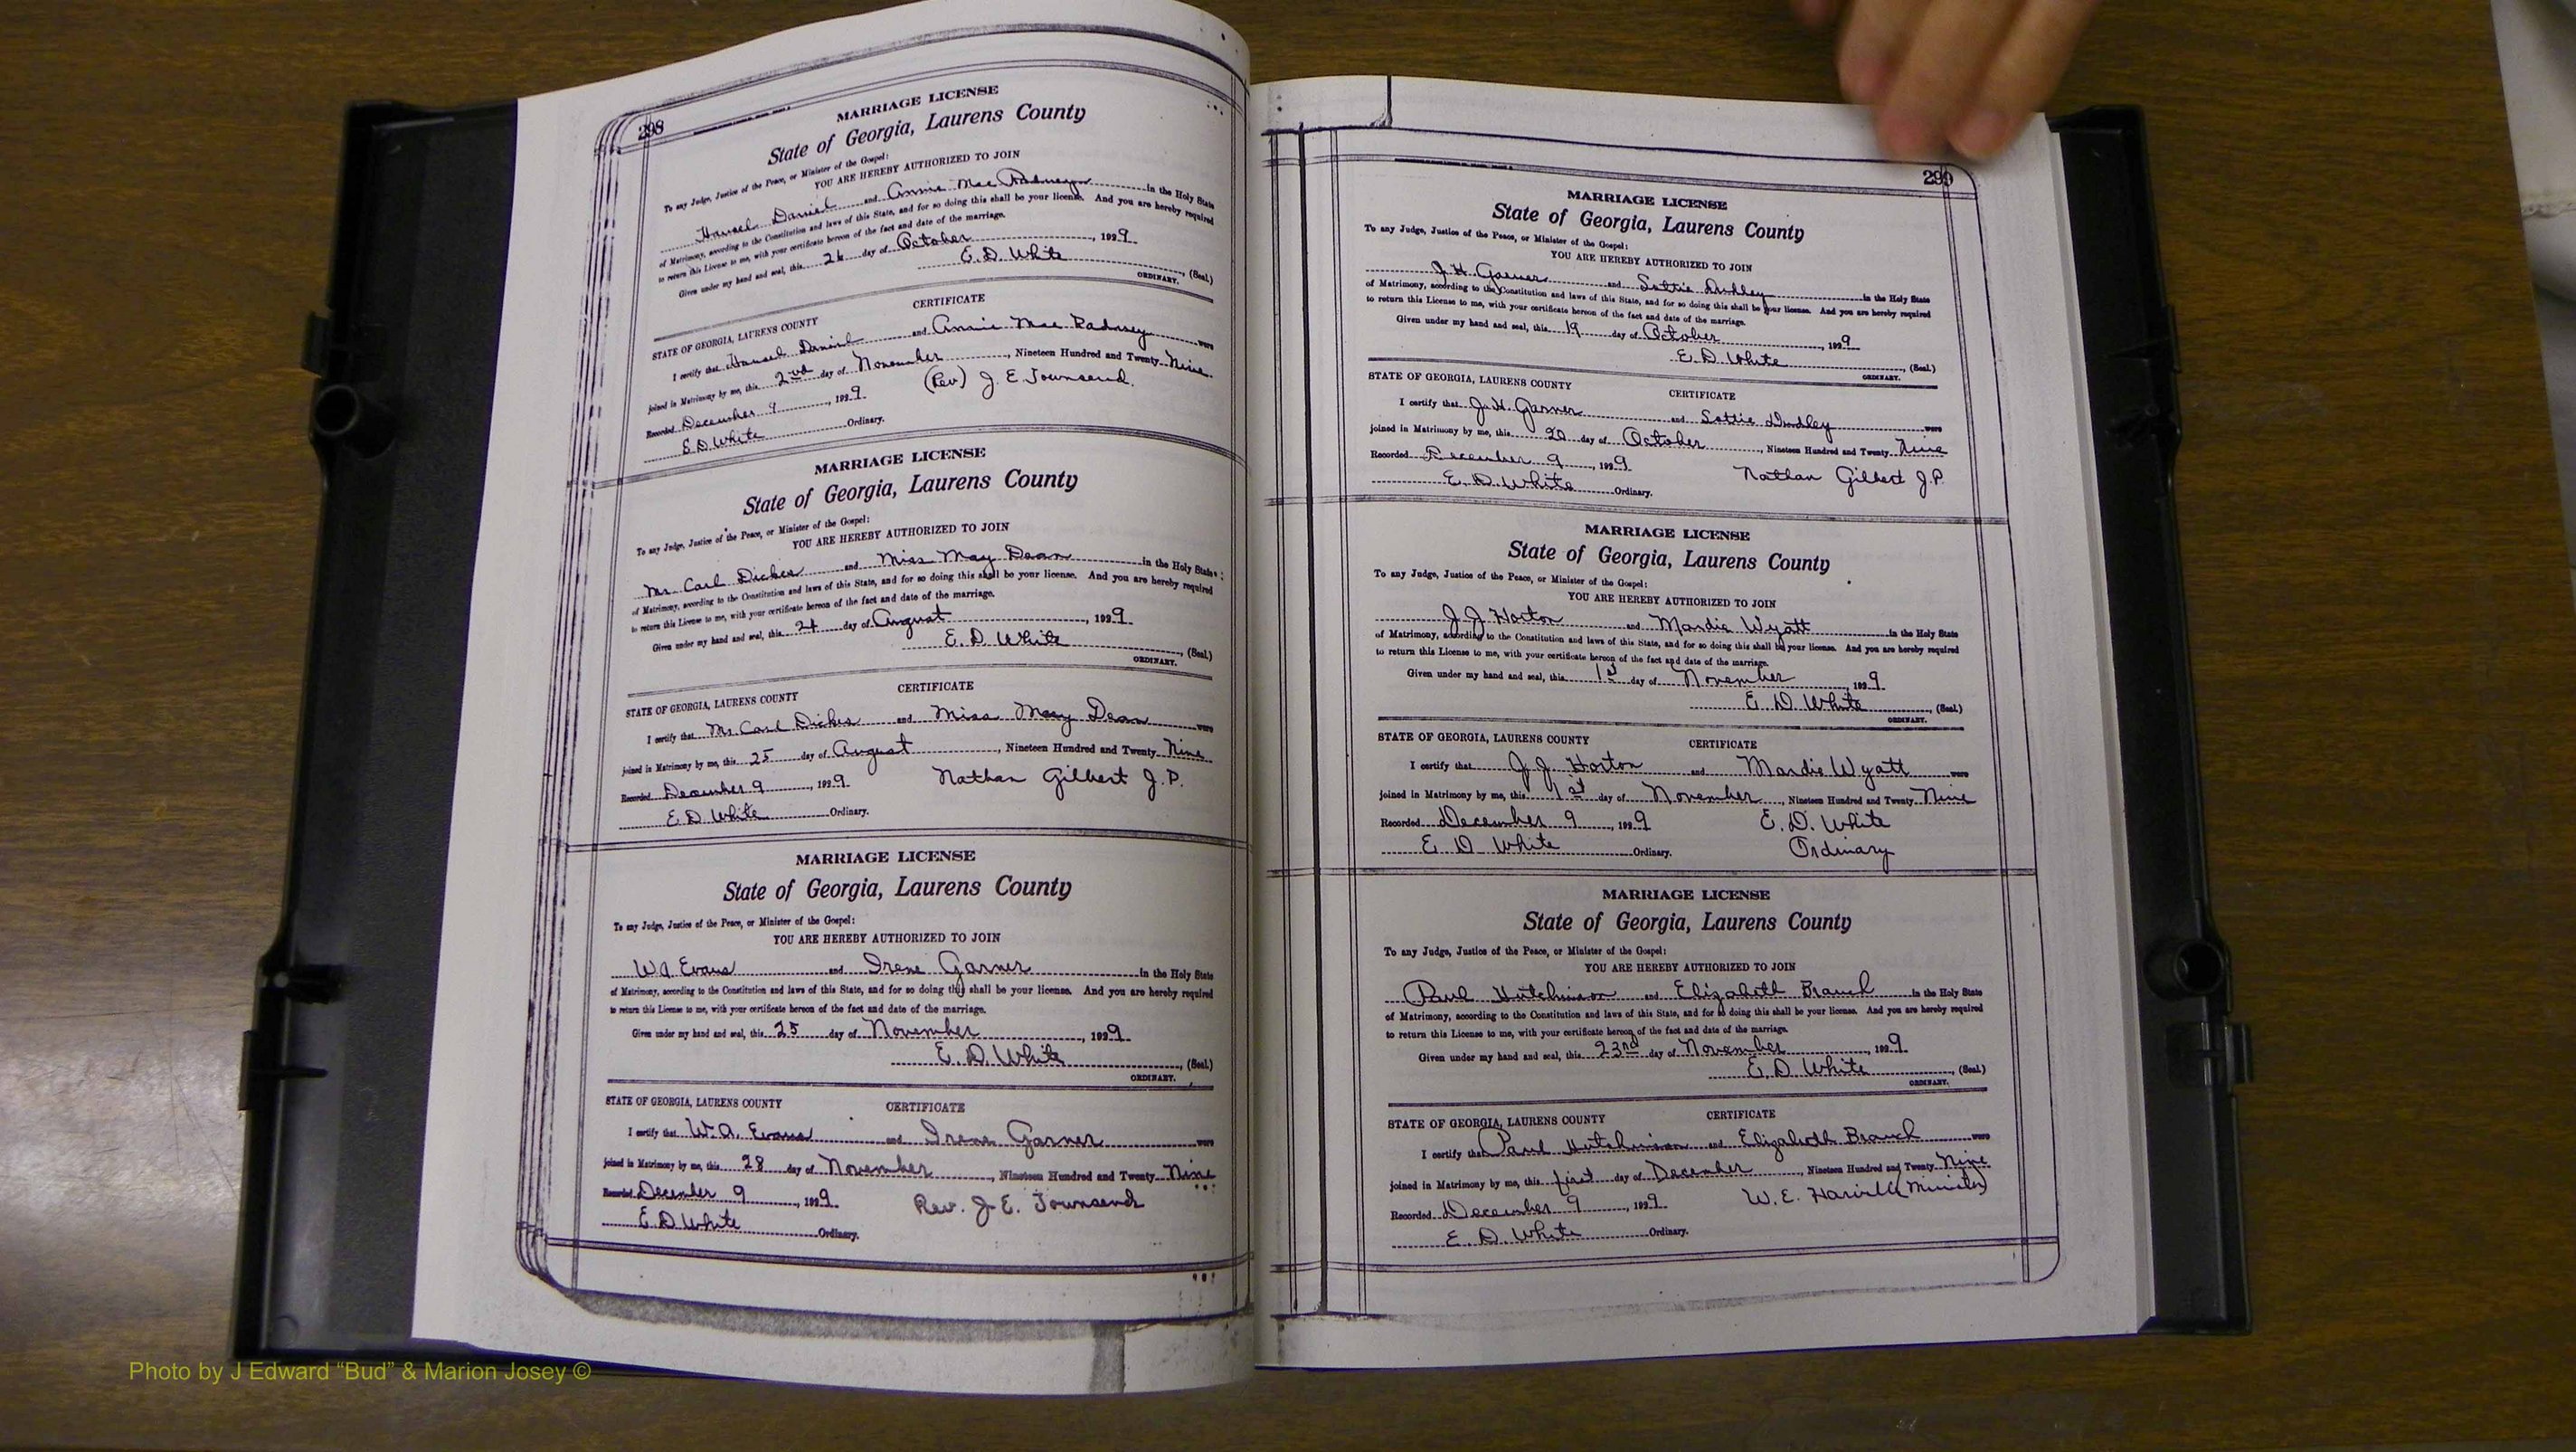 298
MARRIAGE LICENSE
State of Georgia, Laurens County
To any Judge, Justice of the Peace, or Minister of the Gospel:
YOU ARE HEREBY AUTHORIZED TO JOIN
Daniel and Annie Mae in the Holy State
of Matrimony, according to the Constitution and laws of this State, and for so doing this shall be your license. And you are hereby required
to return this License to me, with your certificate hereon of the fact and date of the marriage.
Given under my hand and seal, this 26 day of October, 1929
E. D. White, (Seal.)
ORDINARY.
CERTIFICATE
STATE OF GEORGIA, LAURENS COUNTY
I certify that Daniel and Annie Mae were
joined in Matrimony by me, this 2nd day of November, Nineteen Hundred and Twenty Nine
Recorded December 9, 1929. (Rev) J. E. Townsend.
E. D. White Ordinary.
MARRIAGE LICENSE
State of Georgia, Laurens County
To any Judge, Justice of the Peace, or Minister of the Gospel:
YOU ARE HEREBY AUTHORIZED TO JOIN
Mr. Carl and Miss May Dean in the Holy State
of Matrimony, according to the Constitution and laws of this State, and for so doing this shall be your license. And you are hereby required
to return this License to me, with your certificate hereon of the fact and date of the marriage.
Given under my hand and seal, this 24 day of August, 1929
E. D. White, (Seal.)
ORDINARY.
CERTIFICATE
STATE OF GEORGIA, LAURENS COUNTY
I certify that Mr. Carl and Miss May Dean were
joined in Matrimony by me, this 25 day of August, Nineteen Hundred and Twenty Nine
Recorded December 9, 1929. Nathan Gilbert J.P.
E. D. White Ordinary.
MARRIAGE LICENSE
State of Georgia, Laurens County
To any Judge, Justice of the Peace, or Minister of the Gospel:
YOU ARE HEREBY AUTHORIZED TO JOIN
W A Evans and Irene Garner in the Holy State
of Matrimony, according to the Constitution and laws of this State, and for so doing this shall be your license. And you are hereby required
to return this License to me, with your certificate hereon of the fact and date of the marriage.
Given under my hand and seal, this 25 day of November, 1929
E. D. White, (Seal.)
ORDINARY.
CERTIFICATE
STATE OF GEORGIA, LAURENS COUNTY
I certify that W. A. Evans and Irene Garner were
joined in Matrimony by me, this 28 day of November, Nineteen Hundred and Twenty Nine
Recorded December 9, 1929. Rev. J. E. Townsend
E. D. White Ordinary.
299
MARRIAGE LICENSE
State of Georgia, Laurens County
To any Judge, Justice of the Peace, or Minister of the Gospel:
YOU ARE HEREBY AUTHORIZED TO JOIN
J. H. Garner and Lottie Dudley in the Holy State
of Matrimony, according to the Constitution and laws of this State, and for so doing this shall be your license. And you are hereby required
to return this License to me, with your certificate hereon of the fact and date of the marriage.
Given under my hand and seal, this 19 day of October, 1929
E. D. White, (Seal.)
ORDINARY.
CERTIFICATE
STATE OF GEORGIA, LAURENS COUNTY
I certify that J. H. Garner and Lottie Dudley were
joined in Matrimony by me, this 20 day of October, Nineteen Hundred and Twenty Nine
Recorded December 9, 1929 Nathan Gilbert J.P.
E. D. White Ordinary.
MARRIAGE LICENSE
State of Georgia, Laurens County
To any Judge, Justice of the Peace, or Minister of the Gospel:
YOU ARE HEREBY AUTHORIZED TO JOIN
J. J. Horton and Mardie Wyatt in the Holy State
of Matrimony, according to the Constitution and laws of this State, and for so doing this shall be your license. And you are hereby required
to return this License to me, with your certificate hereon of the fact and date of the marriage.
Given under my hand and seal, this 1st day of November, 1929
E. D. White, (Seal.)
ORDINARY.
CERTIFICATE
STATE OF GEORGIA, LAURENS COUNTY
I certify that J. J. Horton and Mardie Wyatt were
joined in Matrimony by me, this 1st day of November, Nineteen Hundred and Twenty Nine
Recorded December 9, 1929 E. D. White
E D White Ordinary. Ordinary
MARRIAGE LICENSE
State of Georgia, Laurens County
To any Judge, Justice of the Peace, or Minister of the Gospel:
YOU ARE HEREBY AUTHORIZED TO JOIN
Paul Hutchinson and Elizabeth Branch in the Holy State
of Matrimony, according to the Constitution and laws of this State, and for so doing this shall be your license. And you are hereby required
to return this License to me, with your certificate hereon of the fact and date of the marriage.
Given under my hand and seal, this 23rd day of November, 1929
E. D. White, (Seal.)
ORDINARY.
CERTIFICATE
STATE OF GEORGIA, LAURENS COUNTY
I certify that Paul Hutchinson and Elizabeth Branch were
joined in Matrimony by me, this first day of December, Nineteen Hundred and Twenty Nine
Recorded December 9, 1929. W. E. (Minister)
E. D. White Ordinary.
Photo by J Edward “Bud” & Marion Josey ©